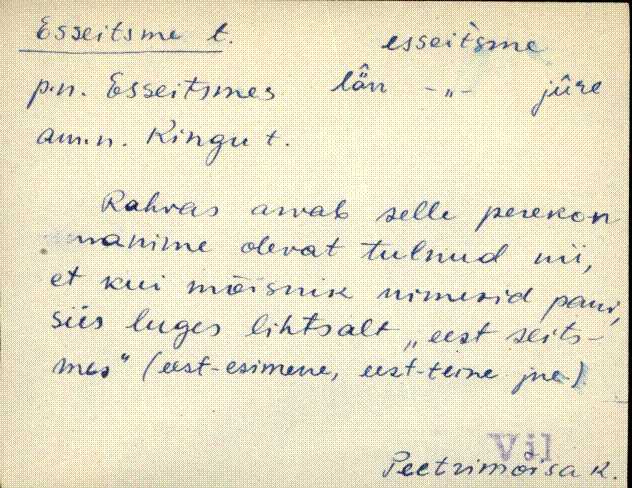 Esseitsme t.
esseìtsme
p.n. Esseitsmes lä̂n -„- jûre
am.n. Kingu t.
Rahvas arvab selle perekon
nanime olevat tulnud nii,
et kui mõisnik nimesid pani,
siis luges lihtsalt „eest seits-
mes" (eest-esimene, eest-teine jne.)
Vil
Peetrimõisa k.